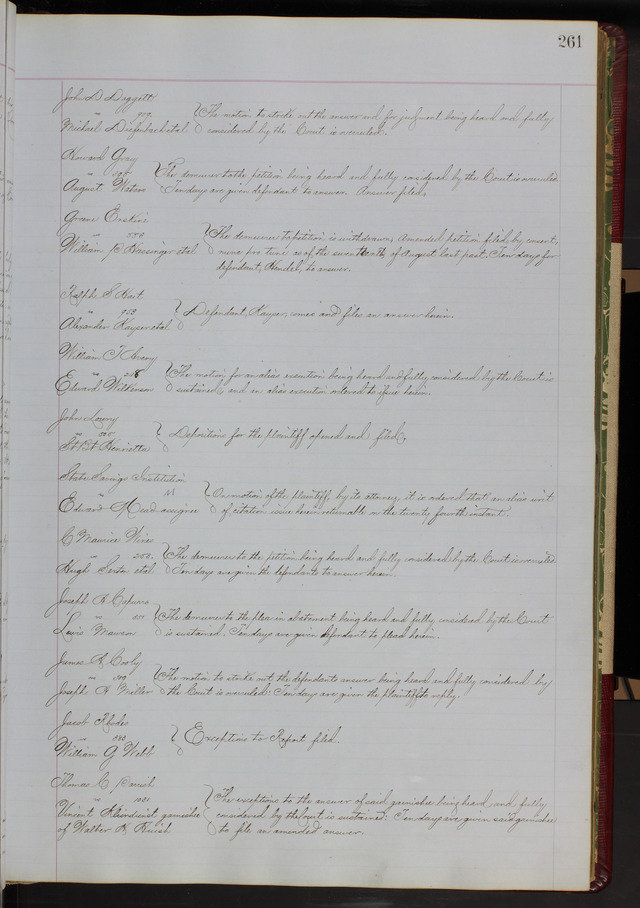 261
John D Daggett
vs
Michael Diefenbach et al
The motion to strike out the answer and for judgment being heard and fully
considered by the Court is overruled.
Howard Gray
vs
August Waters
The demurrer to the petition being heard and fully considered by the Court is overruled
Ten days are given defendant to answer. Answer filed.
Greene Erskine
vs 550
William R Bassinger et al
The demurrer to petition is withdrawn; Amended petition filed, by consent,
nunc pro tunc as of the seventeenth of August last past. Ten days for
defendant, Hendel, to answer.
Ralph S Hart
vs 953
Alexander Kayser et al
Defendant, Kayser, comes and files an answer herein.
William T
vs 218
Edward Wilkerson
The motion for an alias execution being heard and fully considered by the Court is
sustained, and an alias execution ordered to issue herein.
John Lowry
vs 505
St Bt Henrietta
Depositions for the plaintiff opened and filed.
State Savings Institution
vs
Edward Mead assignee
On motion of the plaintiff, by its attorney, it is ordered that an alias writ
of citation issue herein returnable on the twenty fourth instant.
C Maurice Wines
vs 252
Hugh Serton et al
The demurrer to the petition being heard and fully considered by the Court is overruled
Ten days are given the defendants to answer herein.
Joseph A Capurro
vs 151
Lewis Mawson
The demurrer to the plea in abatement being heard and fully considered by the Court
is sustained. Ten days are given defendant to plead herein.
James A Cooly
vs 109
Joseph H Miller
The motion to strike out the defendants answer being heard and fully considered by
the Court is overruled: Ten days are given the plaintiff to reply.
Jacob Rhodes
vs 383
William G Webb
Exceptions to Report filed.
Thomas C Parrish
vs 1001
Vincent garnishee
of Walter K
The exceptions to the answer of said garnishee being heard and fully
considered by the Court is sustained: Ten days are given said garnishee
to file an amended answer.